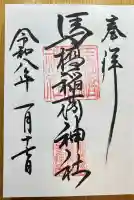 奉拝
馬橋稲荷神社
令和八年一月十一日